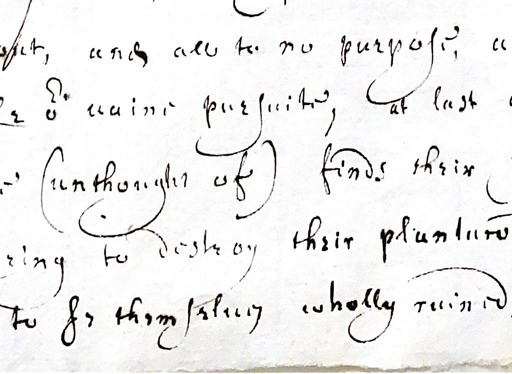 and all to no purpose,
vaine pursuite, at last
(unthought of) finds their
ring to destroy their
to be themselves wholly ruined,